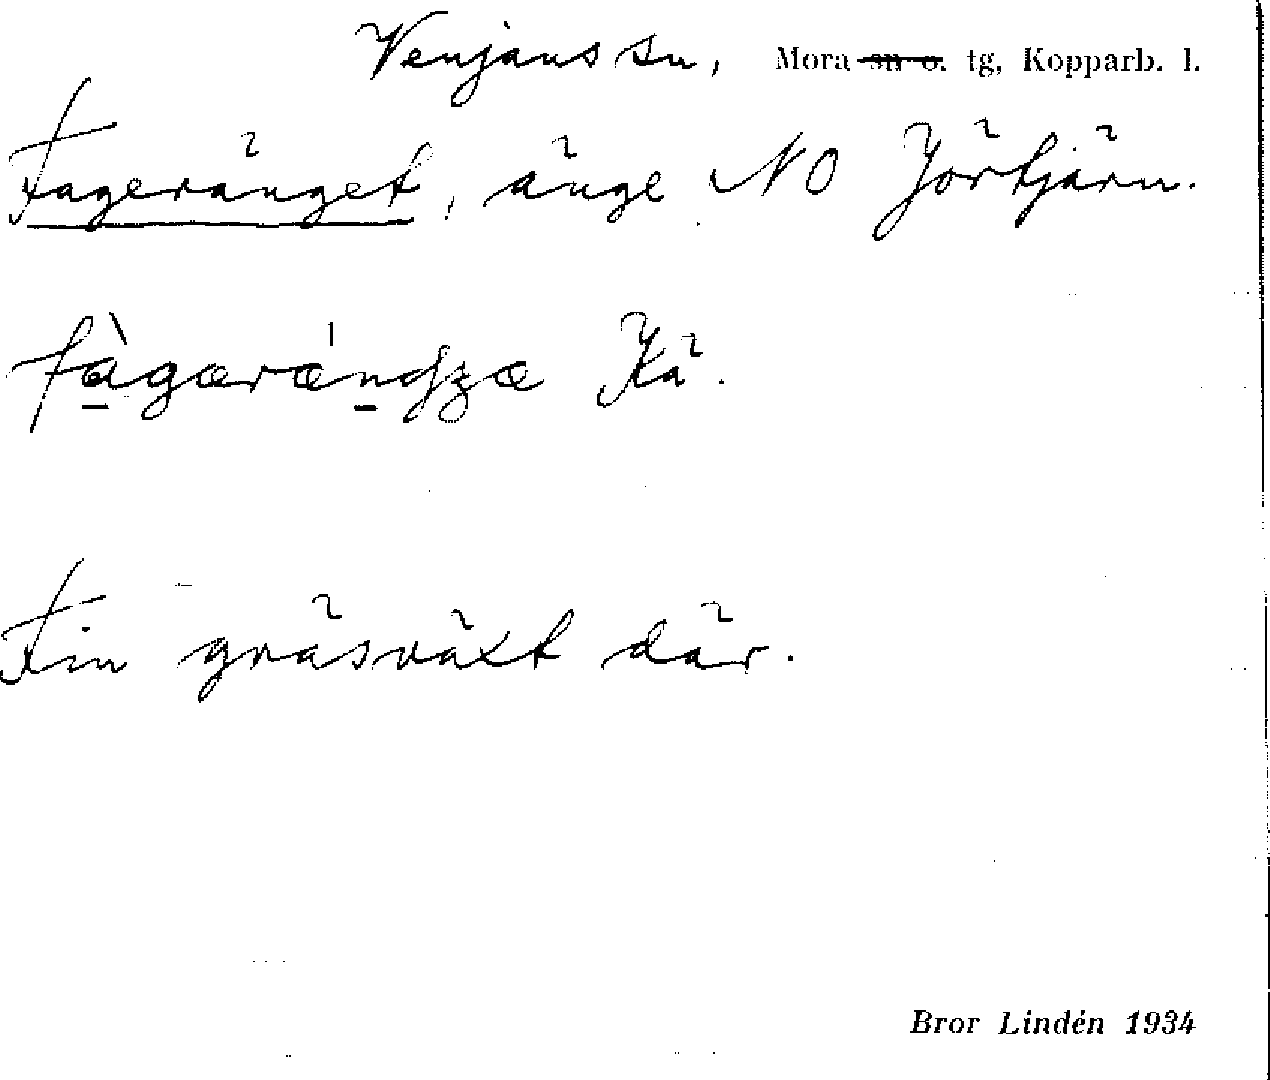 Venjans sn, Mora sn o. tg, Kopparb. l.
Fageränget, änge NO Jörtjärn.
fàgæræ̀ngʒæ Kä.
Fin gräsväxt där.
Bror Lindén 1934